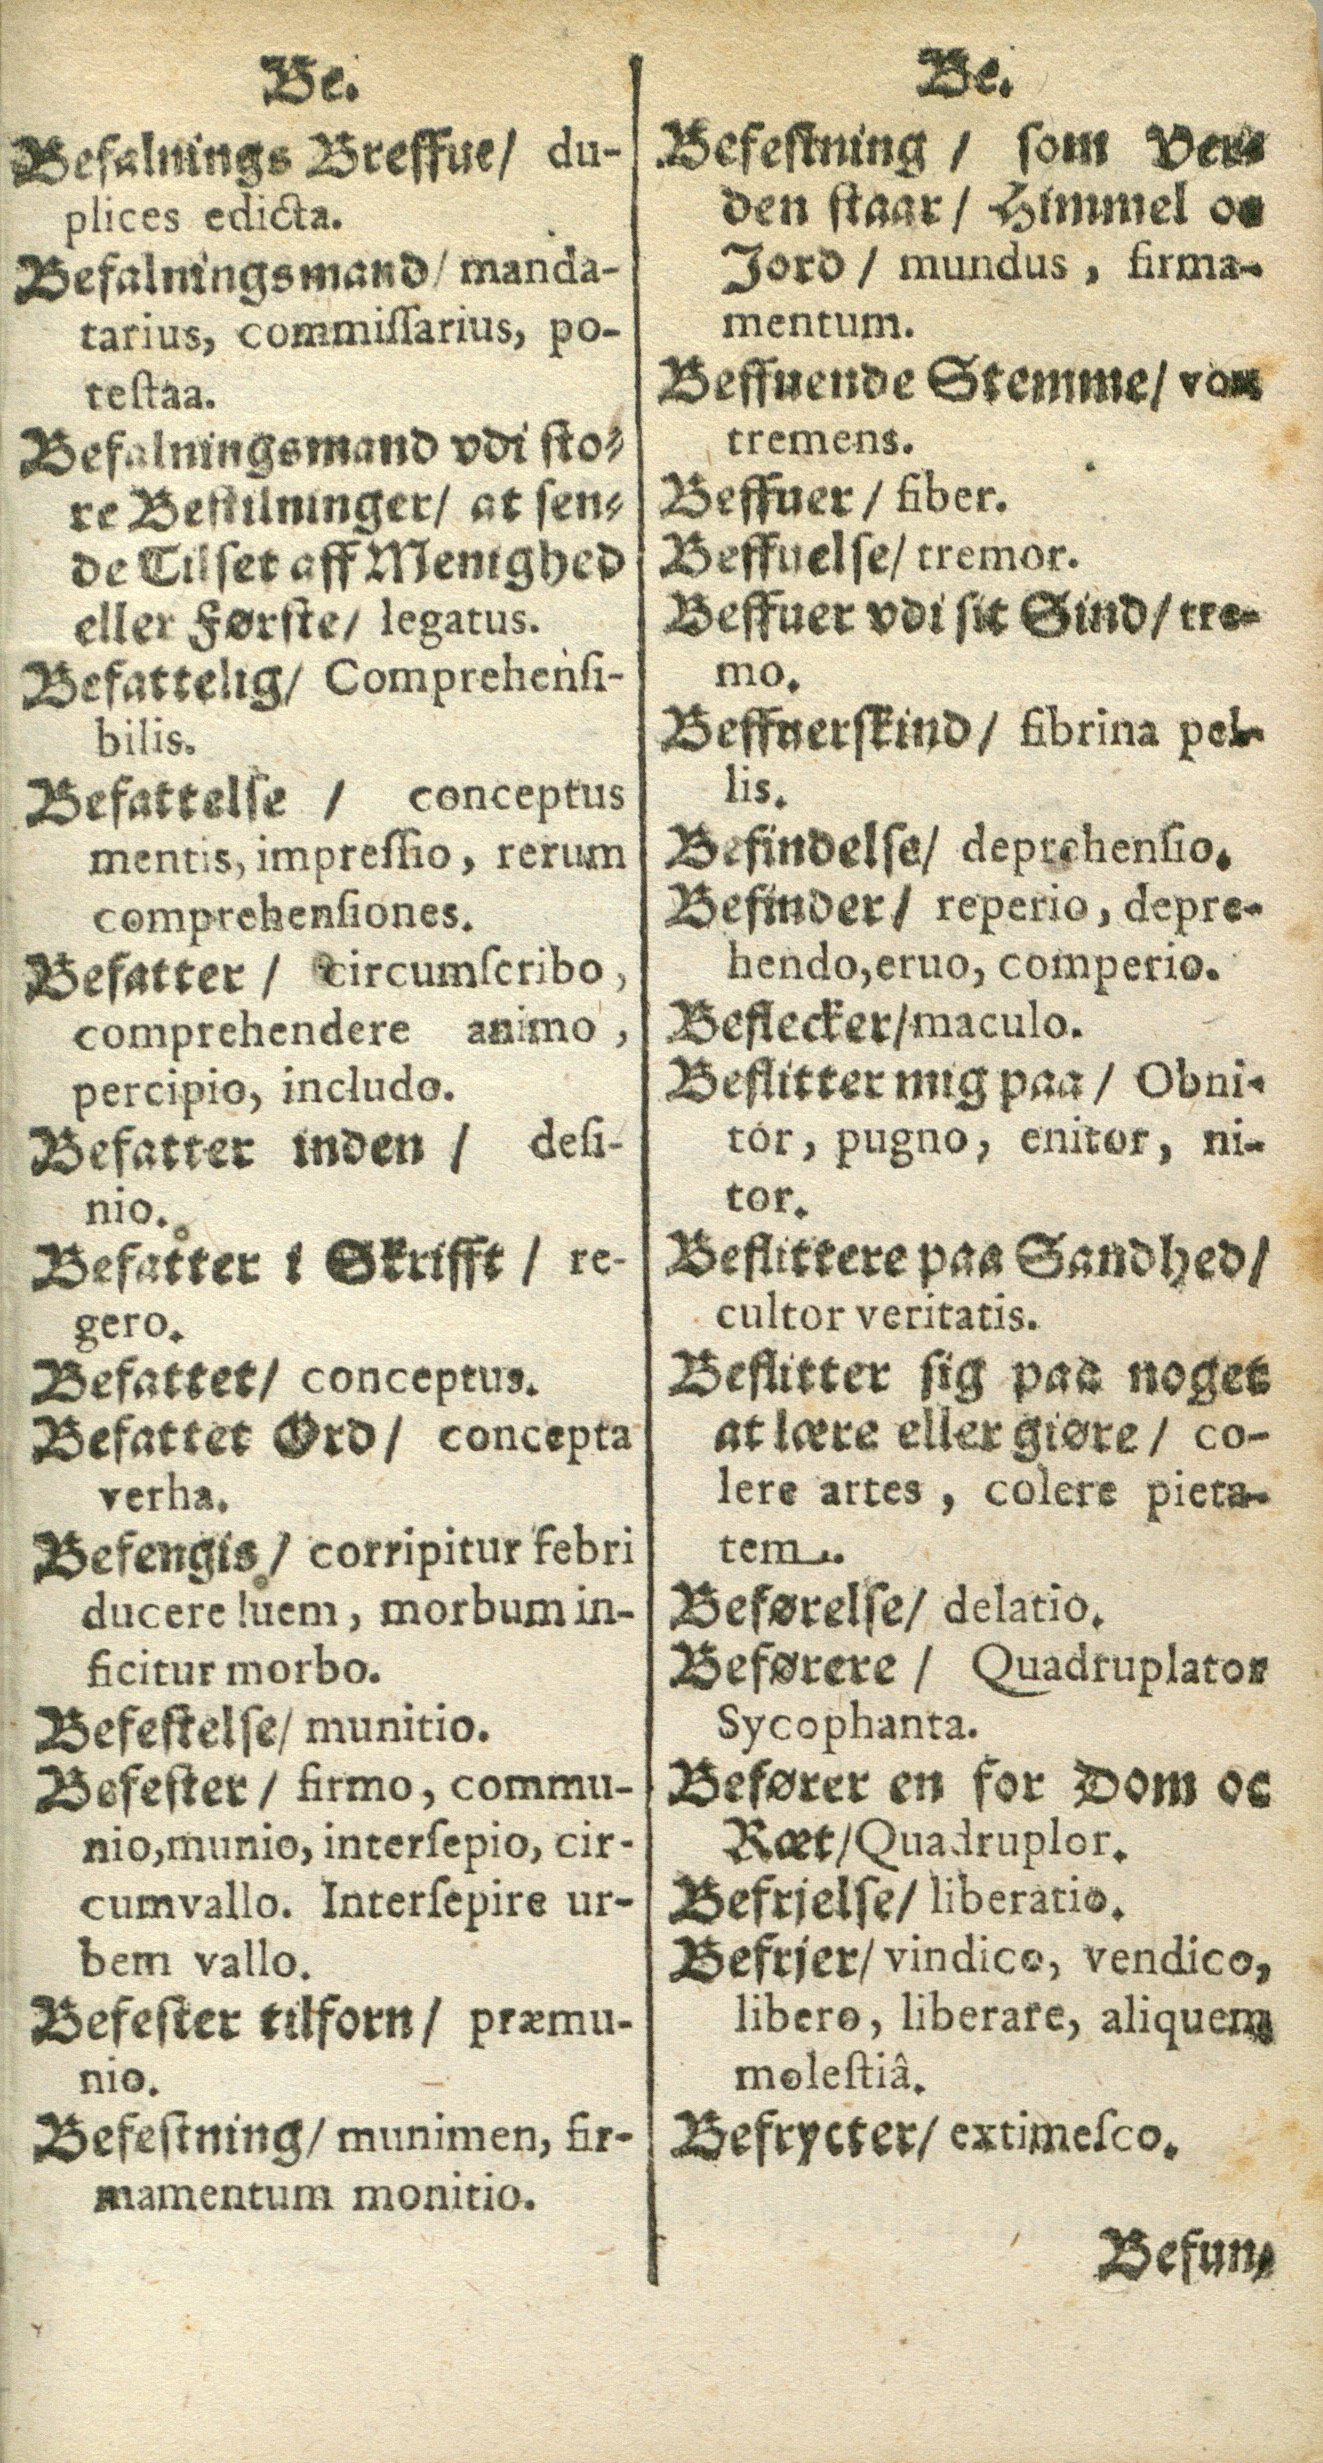 Be.
Befalnings Breffue/ du-
plices edicta.
Befalningsmand/ manda-
tarius, commiſſarius, po-
teſtaa.
Befalningsmand vdi ſto-
re Beſtilninger/ at ſen-
de Tilſet aff Menighed
eller Førſte/ legatus.
Befattelig/ Comprehenſi-
bilis.
Befattelſe / conceptus
mentis, impreſſio, rerum
comprehenſiones.
Befatter / circumſcribo,
comprehendere animo,
percipio, includo.
Befatter inden / defi-
nio.
Befatter i Skrifft / re-
gero.
Befattet/ conceptus.
Befattet Ord/ concepta
verha.
Befengis/ corripitur febri
ducere luem, morbum in-
ficitur morbo.
Befeſtelſe/ munitio.
Befeſter/ firmo, commu-
nio, munio, interſepio, cir-
cumvallo. Interſepire ur-
bem vallo.
Befeſter tilforn/ præmu-
nio.
Befeſtning/ munimen, fir-
mamentum monitio.
Be.
Befeſtning / ſom Ver-
den ſtaar/ Himmel oc
Jord / mundus, firma-
mentum.
Beffuende Stemme/ vox
tremens.
Beffuer / fiber.
Beffuelſe/ tremor.
Beffuer vdi ſit Sind/ tre-
mo.
Beffuerſkind/ fibrina pel-
lis.
Befindelſe/ deprehenſio.
Befinder/ reperio, depre-
hendo, eruo, comperio.
Beflecker/ maculo.
Beflitter mig paa / Obni-
tor, pugno, enitor, ni-
tor.
Beflittere paa Sandhed/
cultor veritatis.
Beflitter ſig paa noget
at lære eller giøre/ co-
lere artes, colere pieta-
tem.
Beførelſe/ delatio.
Beførere / Quadruplator
Sycophanta.
Befører en for Dom oc
Ræt/ Quadruplor.
Befrielſe/ liberatio.
Befrier/ vindico, vendico,
libero, liberare, aliquem
moleſtiâ.
Befrycter/ extimeſco.
Befun-